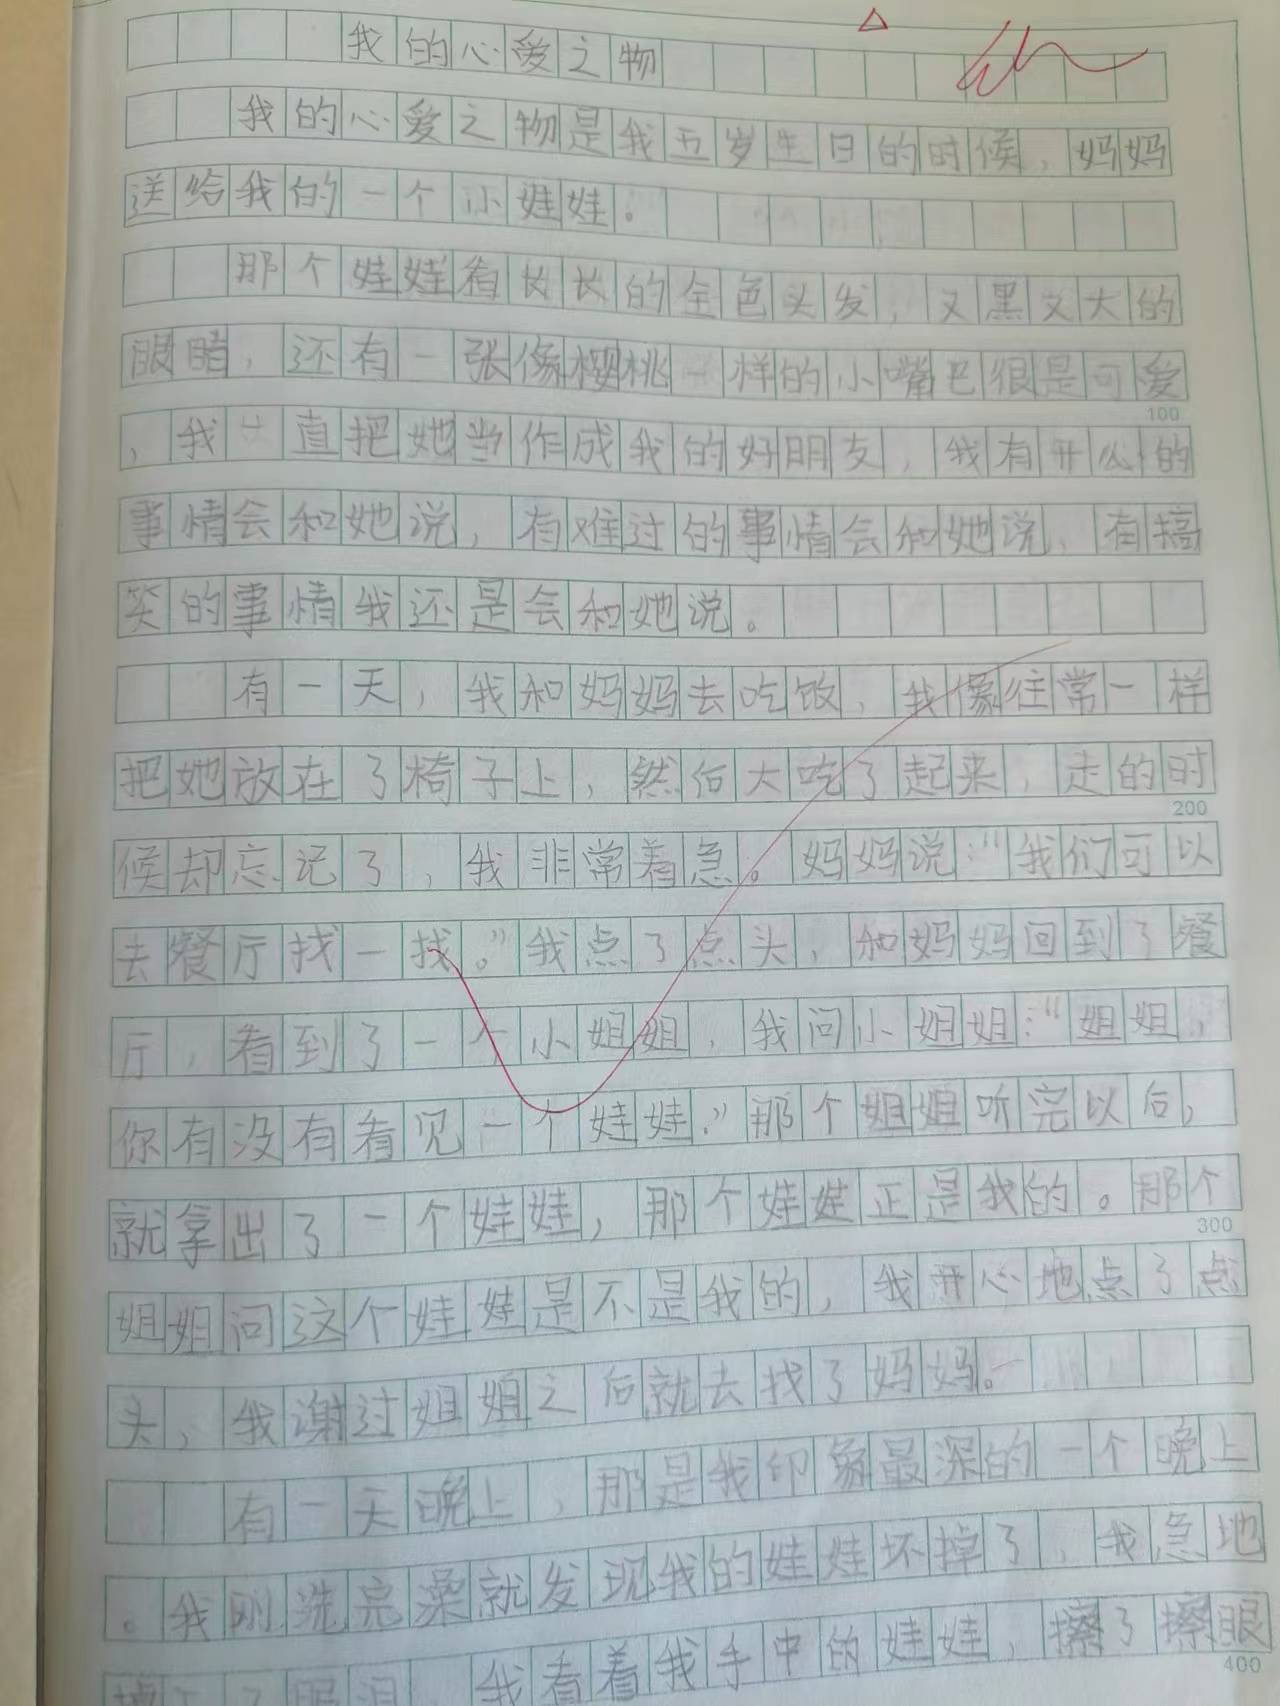 我的心爱之物
我的心爱之物是我五岁生日的时候，妈妈
送给我的一个小娃娃。
那个娃娃有长长的金色头发，又黑又大的
眼睛，还有一张像樱桃一样的小嘴巴很是可爱
100
，我一直把她当作成我的好朋友，我有开心的
事情会和她说，有难过的事情会和她说，有搞
笑的事情我还是会和她说。
有一天，我和妈妈去吃饭，我像往常一样
把她放在了椅子上，然后大吃了起来，走的时
200
候却忘记了，我非常着急。妈妈说：“我们可以
去餐厅找一找。”我点了点头，和妈妈回到了餐
厅，看到了一个小姐姐，我问小姐姐：“姐姐，
你有没有看见一个娃娃。”那个姐姐听完以后，
就拿出了一个娃娃，那个娃娃正是我的。那个
300
姐姐问这个娃娃是不是我的，我开心地点了点
头，我谢过姐姐之后就去找了妈妈。
有一天晚上，那是我印象最深的一个晚上
。我刚洗完澡就发现我的娃娃坏掉了，我急地
我看着我手中的娃娃，擦了擦眼
400